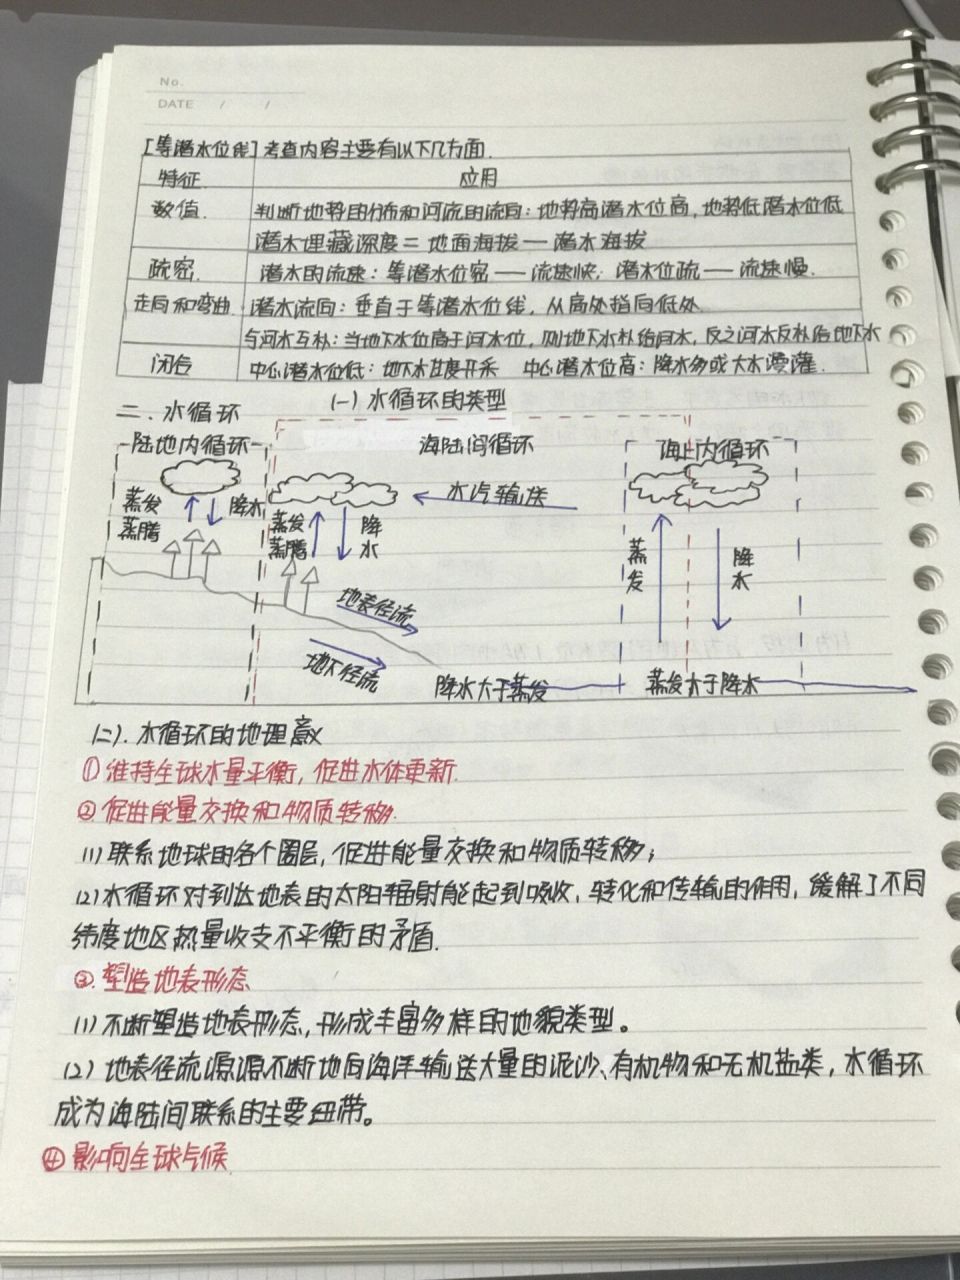 No.
DATE / /
[等潜水位线]考查内容主要有以下几方面.
特征 应用
数值. 判断地势的分布和河流的流向:地势高潜水位高,地势低潜水位低
潜水埋藏深度=地面海拔—潜水海拔
疏密. 潜水的流速:等潜水位密——流速快,潜水位疏——流速慢.
走向和弯曲. 潜水流向:垂直于等潜水位线,从高处指向低处.
与河水互补:当地下水位高于河水位,则地下水补给河水,反之河水反补给地下水
闭合 中心潜水位低:地下水过度开采 中心潜水位高:降水多或大水漫灌.
二.水循环 (一)水循环的类型
陆地内循环 海陆间循环 海上内循环
水汽输送
蒸发 蒸腾 降水 蒸发 蒸腾 降水 蒸发 降水
地表径流
地下径流
降水大于蒸发 蒸发大于降水
(二).水循环的地理意义
①维持全球水量平衡,促进水体更新.
②促进能量交换和物质转移.
(1)联系地球的各个圈层,促进能量交换和物质转移;
(2)水循环对到达地表的太阳辐射能起到吸收,转化和传输的作用,缓解了不同
纬度地区热量收支不平衡的矛盾.
③.塑造地表形态
(1)不断塑造地表形态,形成丰富多样的地貌类型。
(2)地表径流源源不断地向海洋输送大量的泥沙、有机物和无机盐类,水循环
成为海陆间联系的主要纽带。
④影响全球气候